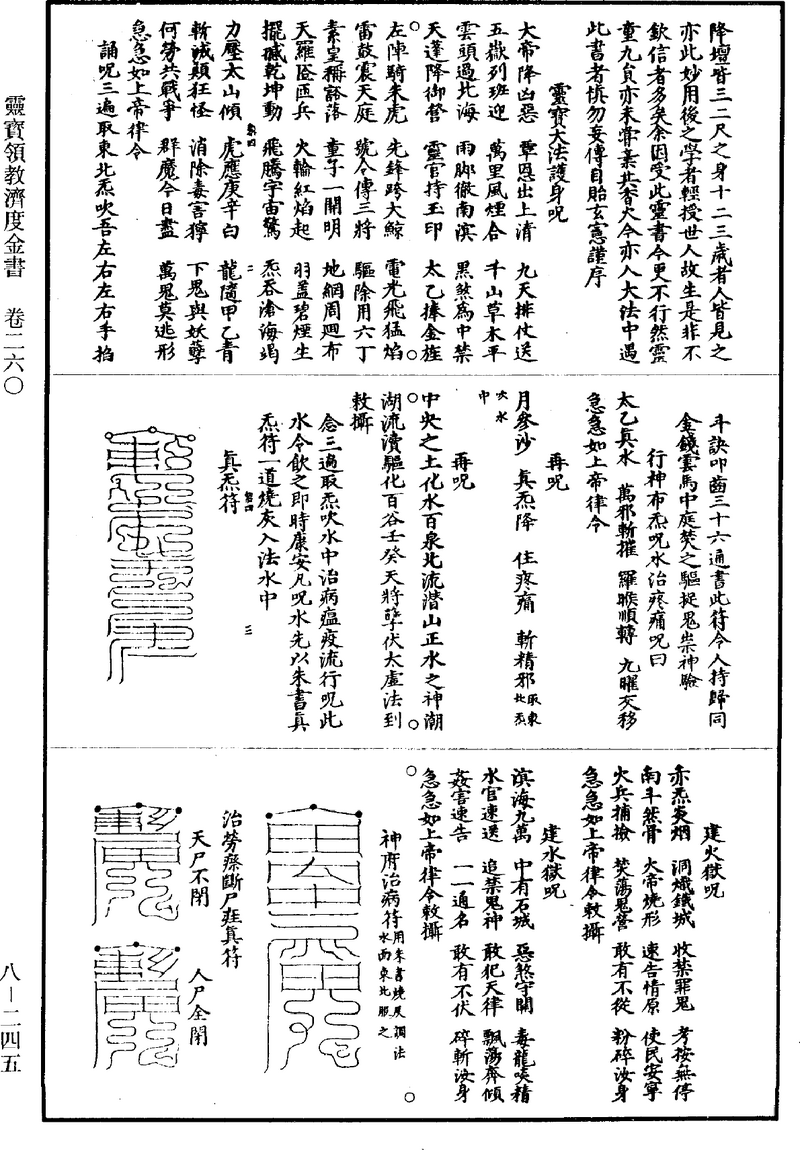 降壇皆三二尺之身十二三歲者人皆見之
亦此妙用後之學者輕授世人故生是非不
欽信者多矣余因受此靈書今更不行然靈
童九員亦未嘗業其害火今亦入大法中遇
此書者慎勿妄傳自貽玄憲謹序
靈寶大法護身呪
大帝降凶惡　覃恩出上清　九天排仗送
五嶽列班迎　萬里風煙合　千山草木平
雲頭過北海　雨脚徹南溟　黑煞為中禁
天蓬降御營　靈官持玉印　太乙捧金旌
左陣騎朱虎　先鋒跨大鯨　電光飛猛焰
雷鼓震天庭　號令傳三將　驅除用六丁
素皇稱豁落　童子一開明　地網周迴布
天羅陰匝兵　火輪紅焰起　羽蓋碧煙生
擺撼乾坤動　飛騰宇宙驚　炁吞滄海竭
力壓太山傾　虎應庚辛白　龍隨甲乙青
斬滅顛狂怪　消除毒害獰　下鬼與妖孽
何勞共戰爭　群魔今日盡　萬鬼莫逃形
急急如上帝律令
誦呪三遍取東北炁吹吾左右左右手掐
斗訣叩齒三十六通書此符令人持歸同
金錢雲馬中庭焚之驅捉鬼祟神驗
行神布炁呪水治疼痛呪曰
太乙真水　萬邪斬摧　羅睺順轉　九曜交移
急急如上帝律令
再呪
月參沙　真炁降　住疼痛　斬精邪取東北炁
吹水中
再呪
中央之土化水百泉北流潛山正水之神潮
湖流瀆驅化百谷壬癸天將孽伏太虛法到
敕攝
念三遍取炁吹水中治病瘟疫流行呪此
水令飲之即時康安凡呪水先以朱書真
炁符一道燒灰入法水中
真炁符
三
建火獄呪
赤炁炎烟　洞熾鐵城　收禁罪鬼　考按無停
南斗煞骨　大帝燒形　速告情原　使民安寧
火兵捕撿　焚蕩鬼營　敢有不從　粉碎汝身
急急如上帝律令敕攝
建水獄呪
溟海九萬　中有石城　惡煞守關　毒龍啖精
水官速送　追禁鬼神　敢犯天律　飄蕩齊傾
姦害速告　一一通名　敢有不伏　碎斬汝身
急急如上帝律令敕攝
神府治病符用朱書燒灰調法水面東北服之
治勞瘵斷尸疰真符
天尸不閉
人尸全閉
靈寶領教濟度金書　卷二六〇
八—二四五